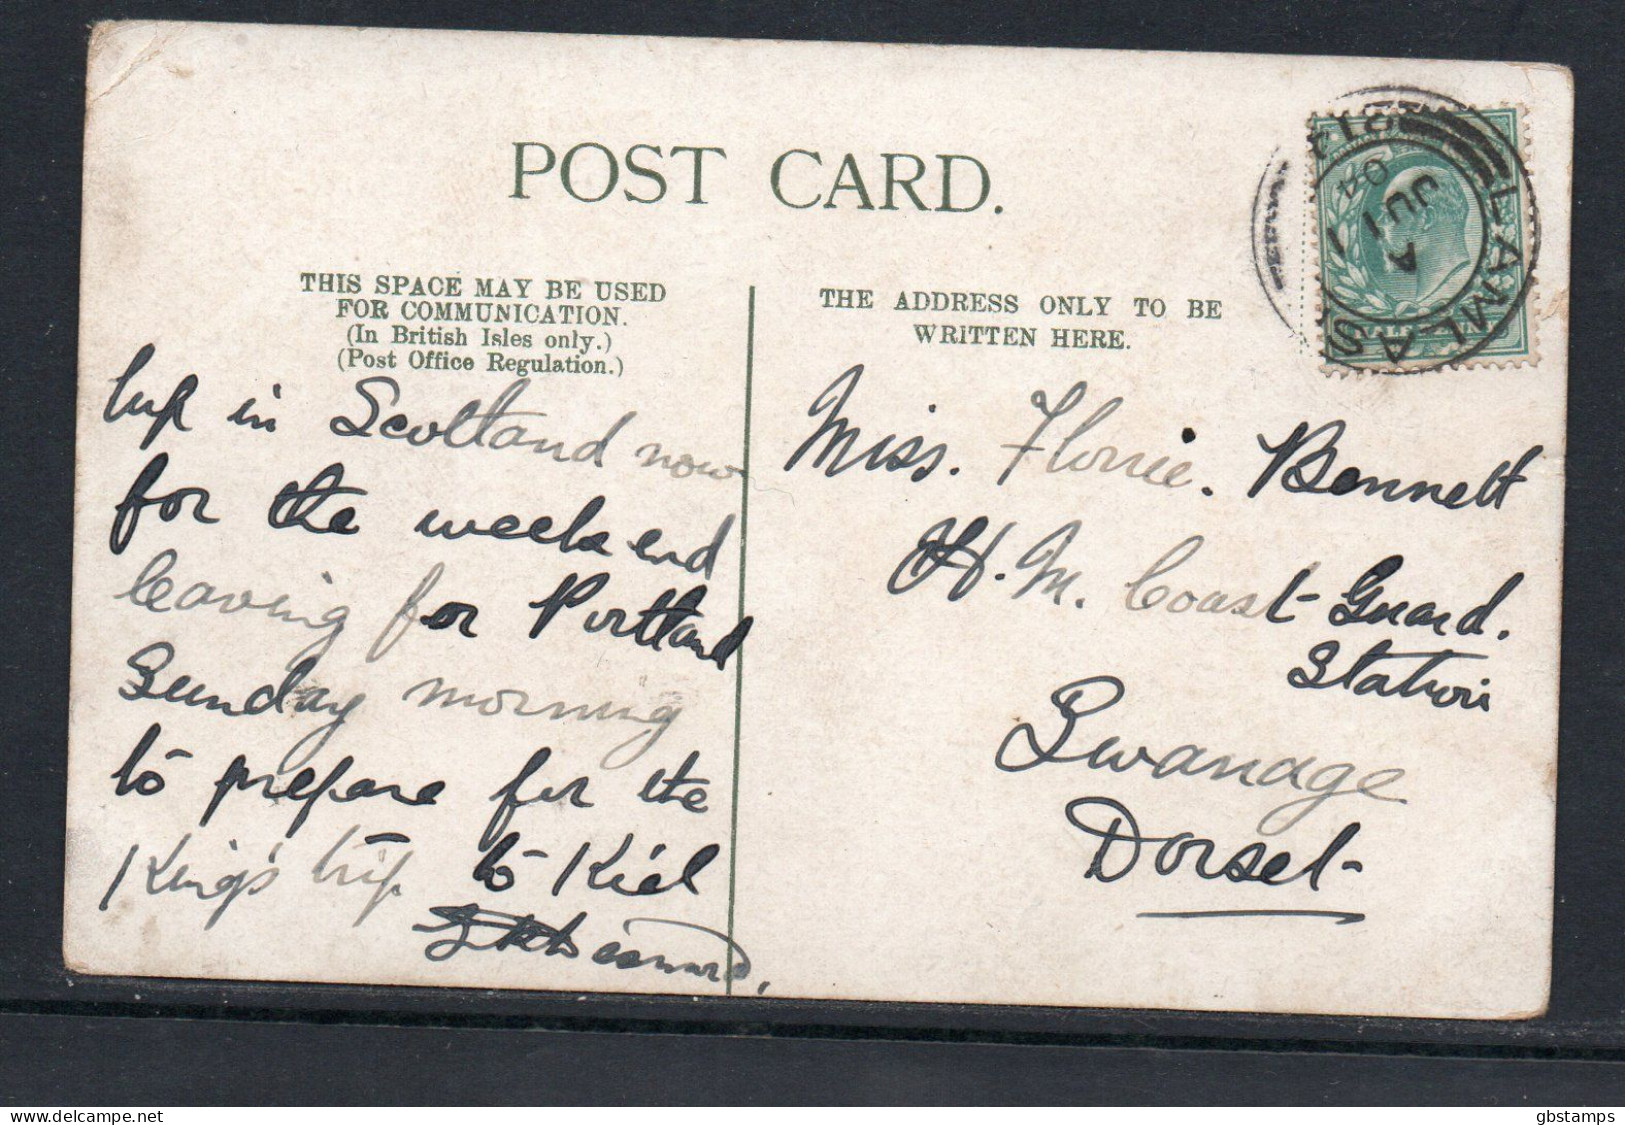 POST CARD.
THIS SPACE MAY BE USED
FOR COMMUNICATION.
(In British Isles only.)
(Post Office Regulation.)
THE ADDRESS ONLY TO BE
WRITTEN HERE.
LAMLASH
A
JU 11
04
up in Scotland now
for the week end
leaving for Portland
Sunday morning
to prepare for the
King's trip to Kiel
Miss. Florrie. Bennett
H.M. Coast Guard.
Station
Swanage
Dorset
gbstamps